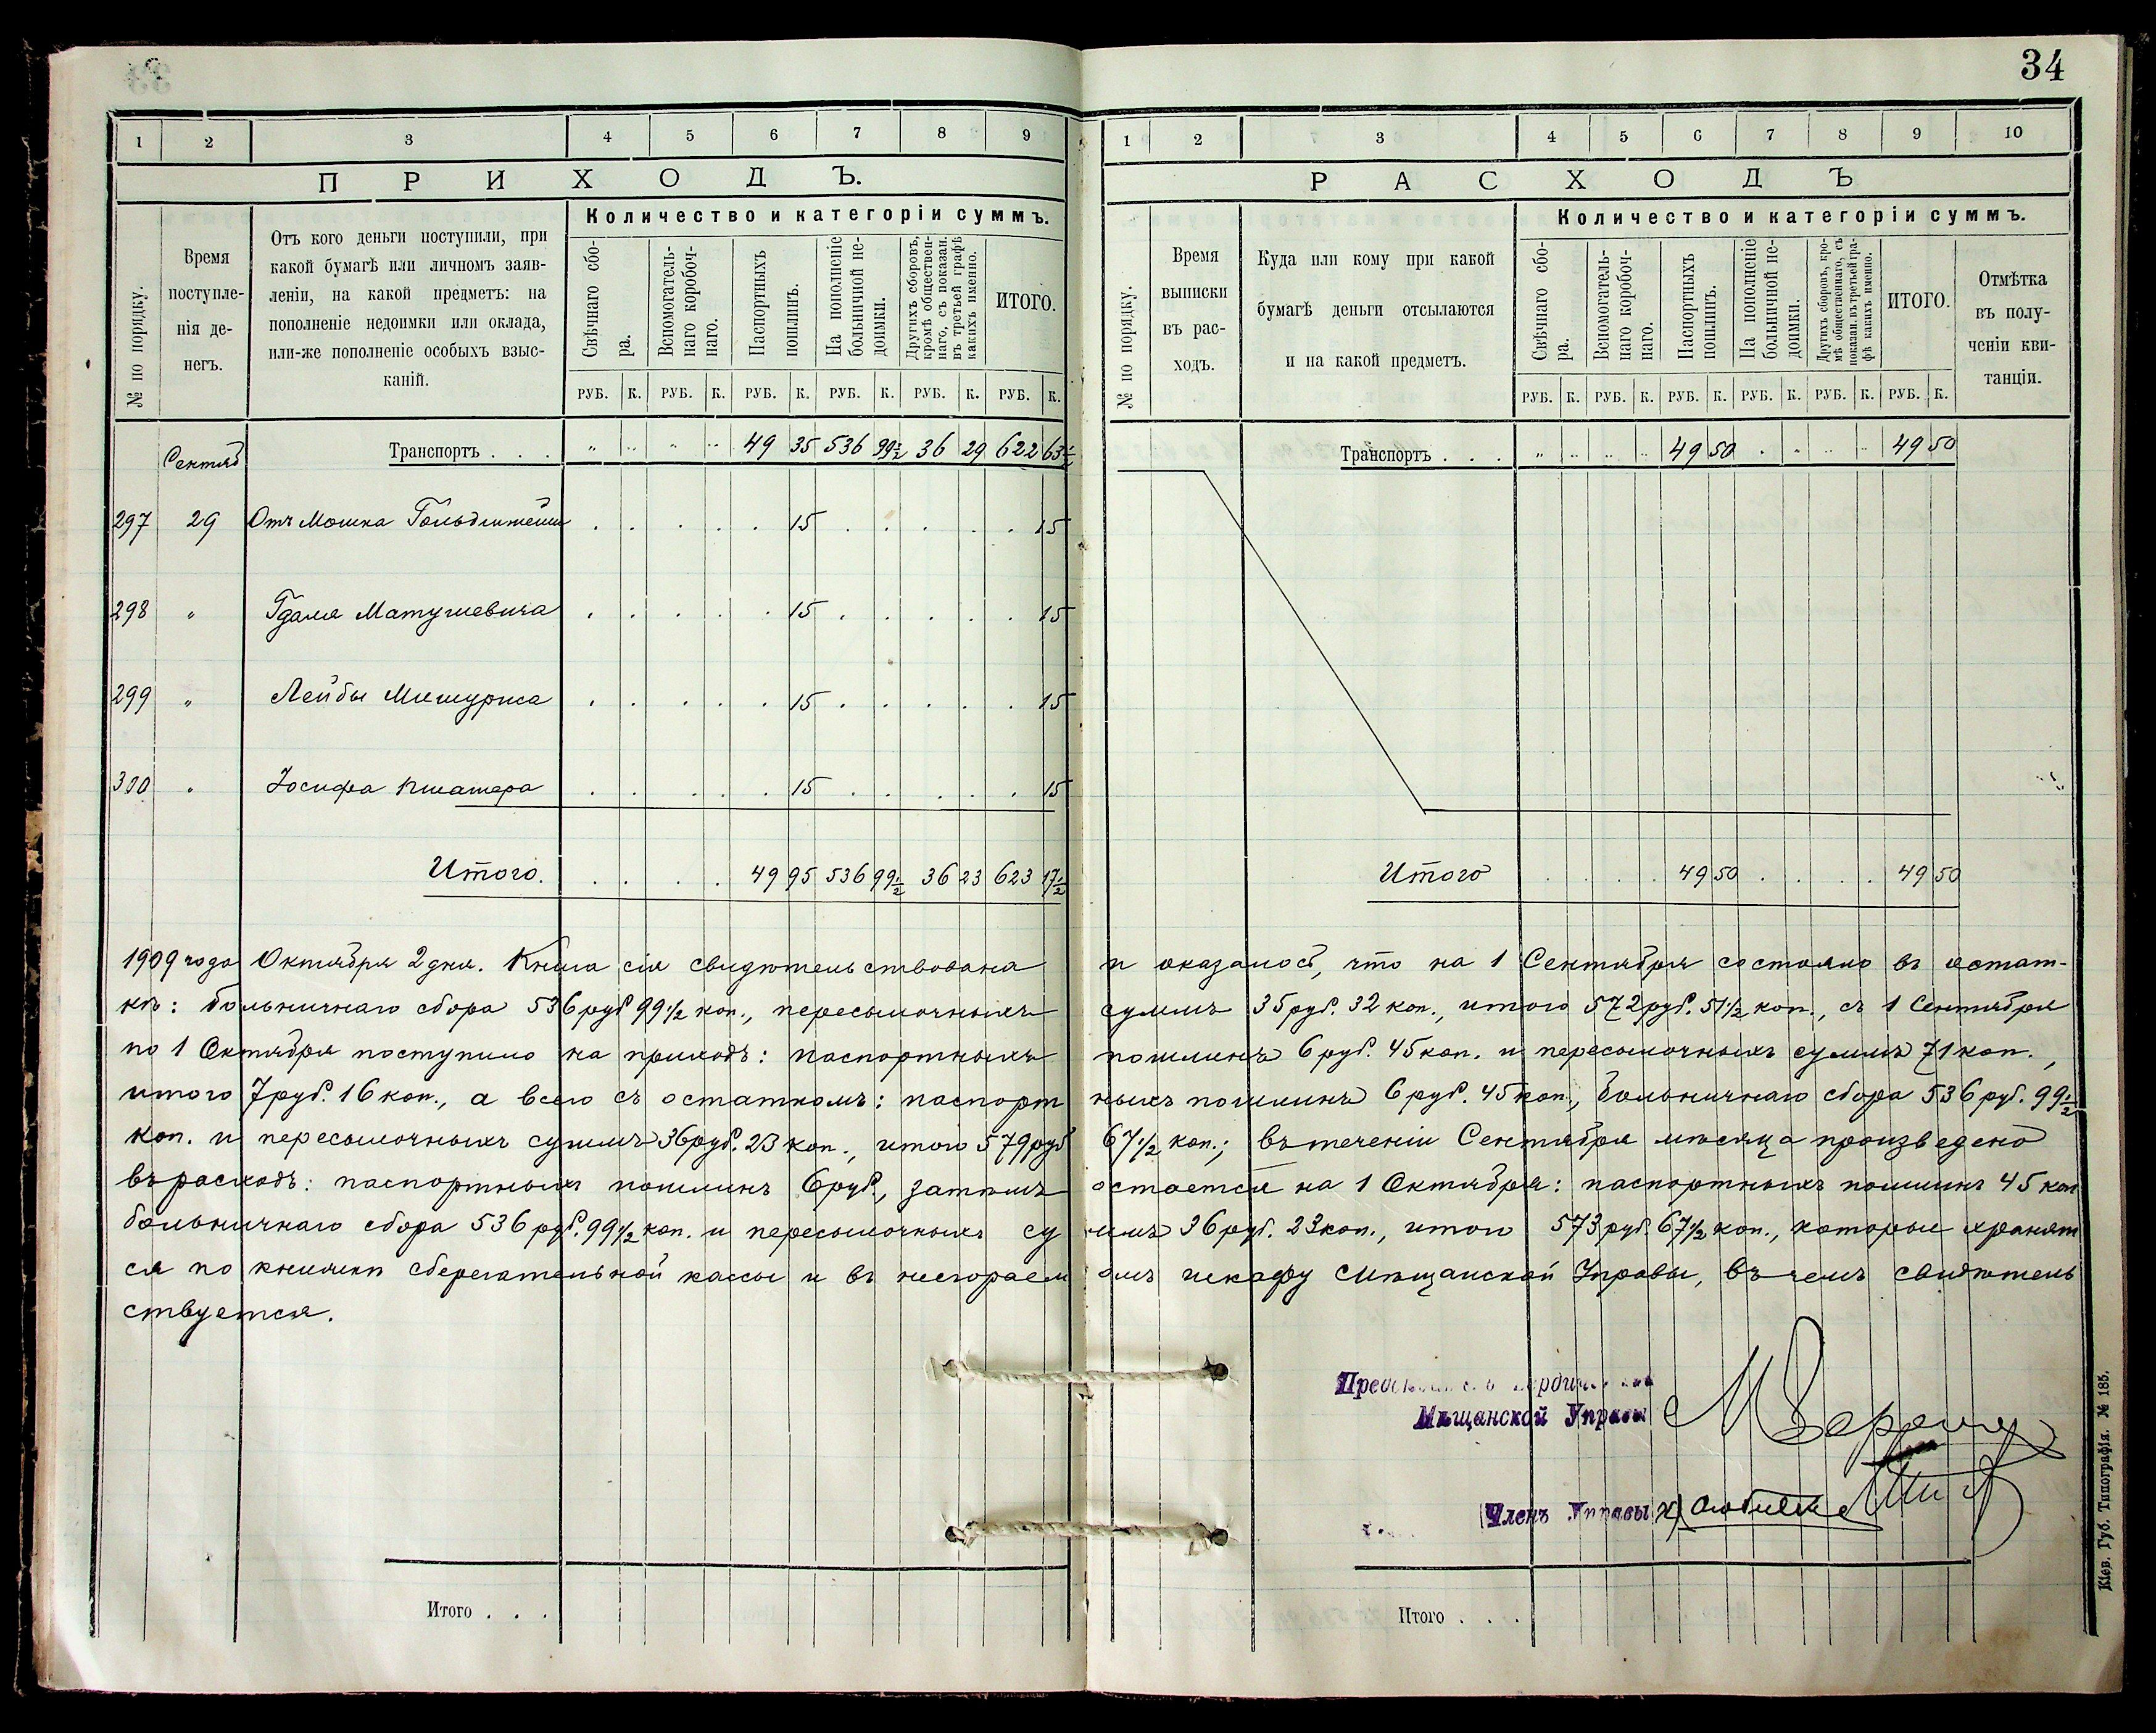 34
1 2 3 4 5 6 7 8 9
ПРИХОДЪ.
Количество и категоріи суммъ.
№ по порядку.
Время поступле-
нія де-
негъ.
Отъ кого деньги поступили, при
какой бумагѣ или личномъ заяв-
леніи, на какой предметъ: на
пополненіе недоимки или оклада,
или-же пополненіе особыхъ взыс-
каній.
Свѣчнаго сбо-
ра.
Вспомогатель-
наго коробоч-
наго.
Паспортныхъ
пошлинъ.
На пополненіе
больничной не-
доимки.
Другихъ сборовъ,
кромѣ обществен-
наго, съ показан.
въ третьей графѣ
какихъ именно.
ИТОГО.
РУБ. К. РУБ. К. РУБ. К. РУБ. К. РУБ. К. РУБ. К.
Сентяб Транспортъ . . . " " " " 49 35 536 99½ 36 29 622 63½
297 29 Отъ Мошка Гольдштейн . . . . . 15 . . . . . 15
298 " Гдаля Матушевича . . . . . 15 . . . . . 15
299 " Лейбы Мишуриса . . . . . 15 . . . . . 15
300 " Іосифа . . . . . 15 . . . . . 15
Итого. . . . . 49 95 536 99½ 36 23 623 17½
1 2 3 4 5 6 7 8 9 10
РАСХОДЪ
Количество и категоріи суммъ.
№ по порядку.
Время
выписки
въ рас-
ходъ.
Куда или кому при какой
бумагѣ деньги отсылаются
и на какой предметъ.
Свѣчнаго сбо-
ра.
Вспомогатель-
наго коробоч-
наго.
Паспортныхъ
пошлинъ.
На пополненіе
больничной не-
доимки.
Другихъ сборовъ, кро-
мѣ общественнаго, съ
показан. въ третьей гра-
фѣ какихъ именно.
ИТОГО.
Отмѣтка
въ полу-
ченіи кви-
танціи.
РУБ. К. РУБ. К. РУБ. К. РУБ. К. РУБ. К. РУБ. К.
Транспортъ . . . " " " " 49 50 . " " " 49 50
Итого . . . . 49 50 . . . . 49 50
1909 года Октября 2 дня. Книга сія свидѣтельствована и оказалось, что на 1 Сентября состояло въ остат-
кѣ: больничнаго сбора 536 руб 99½ коп., пересылочныхъ суммъ 35 руб. 32 коп., итого 572 руб. 51½ коп., съ 1 Сентября
по 1 Октября поступило на приходъ: паспортныхъ пошлинъ 6 руб. 45 коп. и пересылочныхъ суммъ 71 коп.,
итого 7 руб. 16 коп., а всего съ остаткомъ: паспорт ныхъ пошлинъ 6 руб. 45 коп., больничнаго сбора 536 руб. 99½
коп. и пересылочныхъ суммъ 36 руб. 23 коп., итого 579 руб 67½ коп.; въ теченіи Сентября мѣсяца произведено
въ расходъ: паспортныхъ пошлинъ 6 руб., затѣмъ остается на 1 Октября: паспортныхъ пошлинъ 45 коп
больничнаго сбора 536 руб. 99½ коп. и пересылочныхъ су ммъ 36 руб. 23 коп., итого 573 руб. 67½ коп., которые хранят
ся по книжкѣ сберегательной кассы и въ несгораем омъ шкафу Мѣщанской Управы, въ чемъ свидѣтель
ствуется.
Мѣщанской Управы
Членъ Управы
Итого . . .
Итого . . .
Кіев. Губ. Типографія. № 185.